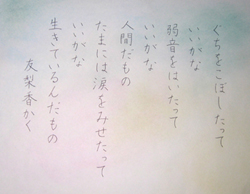 ぐちをこぼしたって
いいがな
弱音をはいたって
いいがな
人間だもの
たまには涙をみせたって
いいがな
生きているんだもの
友梨香かく